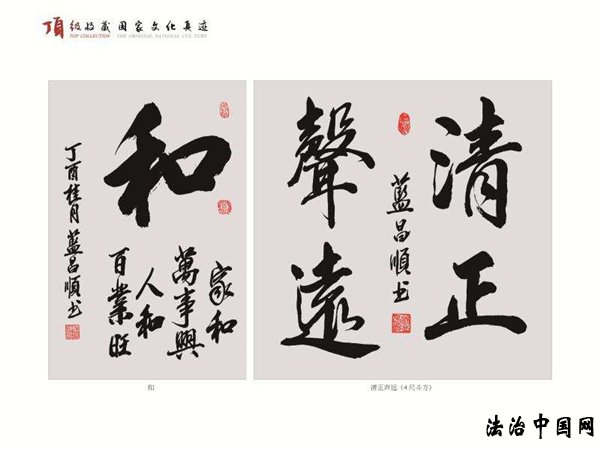 顶级收藏国家文化真迹
TOP COLLECTION THE ORIGINAL NATIONAL CULTURE
和
家和
萬事興
人和
百業旺
丁酉桂月藍昌順书
清正
聲遠
藍昌順书
和
清正声远（4尺斗方）
法治中国网